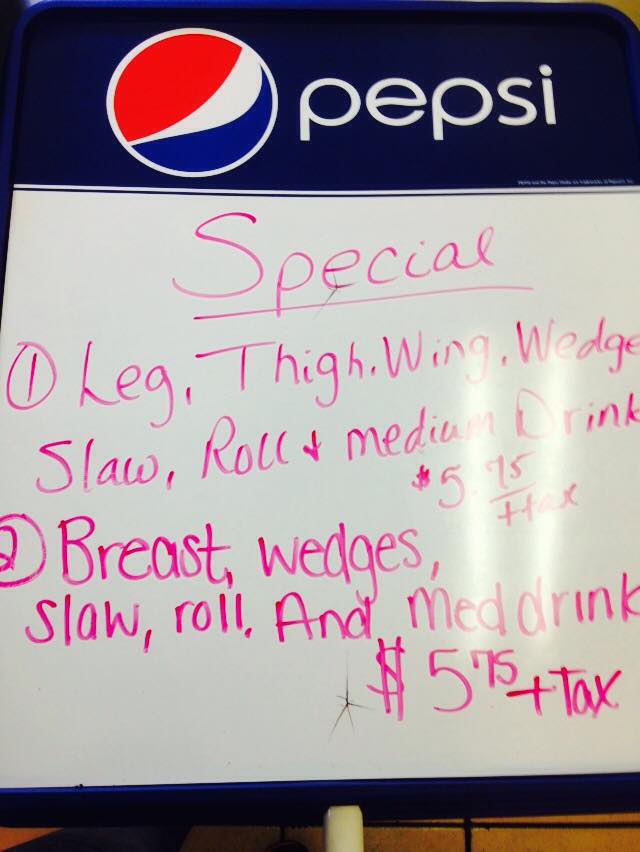 pepsi
Special
① Leg, Thigh, Wing, Wedge
Slaw, Roll & medium Drink
$5.75 + tax
② Breast, wedges,
slaw, roll, And med drink
$5.75 + Tax